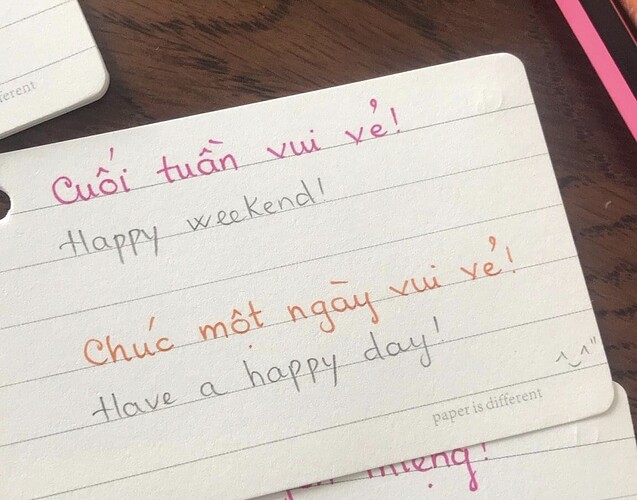 Cuối tuần vui vẻ!
Happy weekend!
Chúc một ngày vui vẻ!
Have a happy day!
^‿^"
paper is different
miệng!